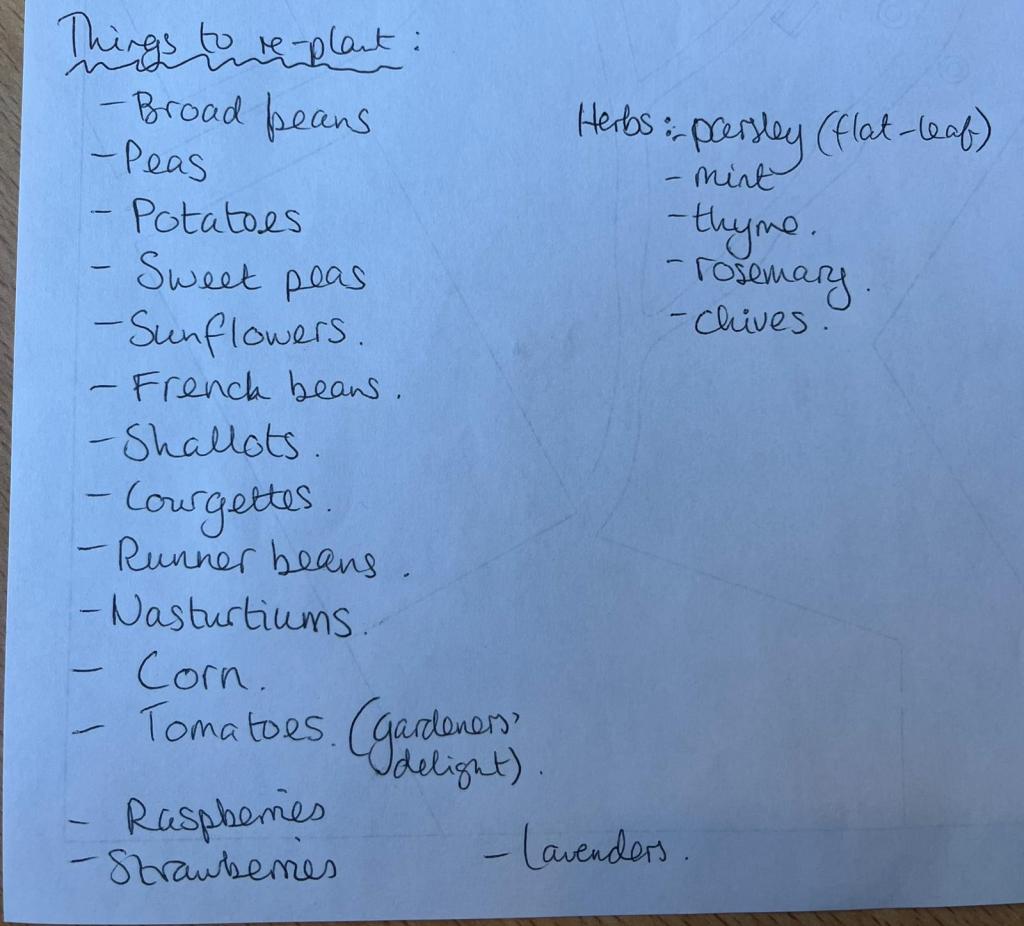 Things to re-plant :
- Broad beans
- Peas
- Potatoes
- Sweet peas
- Sunflowers.
- French beans.
- Shallots.
- Courgettes.
- Runner beans.
- Nasturtiums.
- Corn.
- Tomatoes. (gardeners'
delight).
- Raspberries
- Strawberries
- Lavenders.
Herbs :- parsley (flat-leaf)
- mint
- thyme.
- rosemary.
- chives.